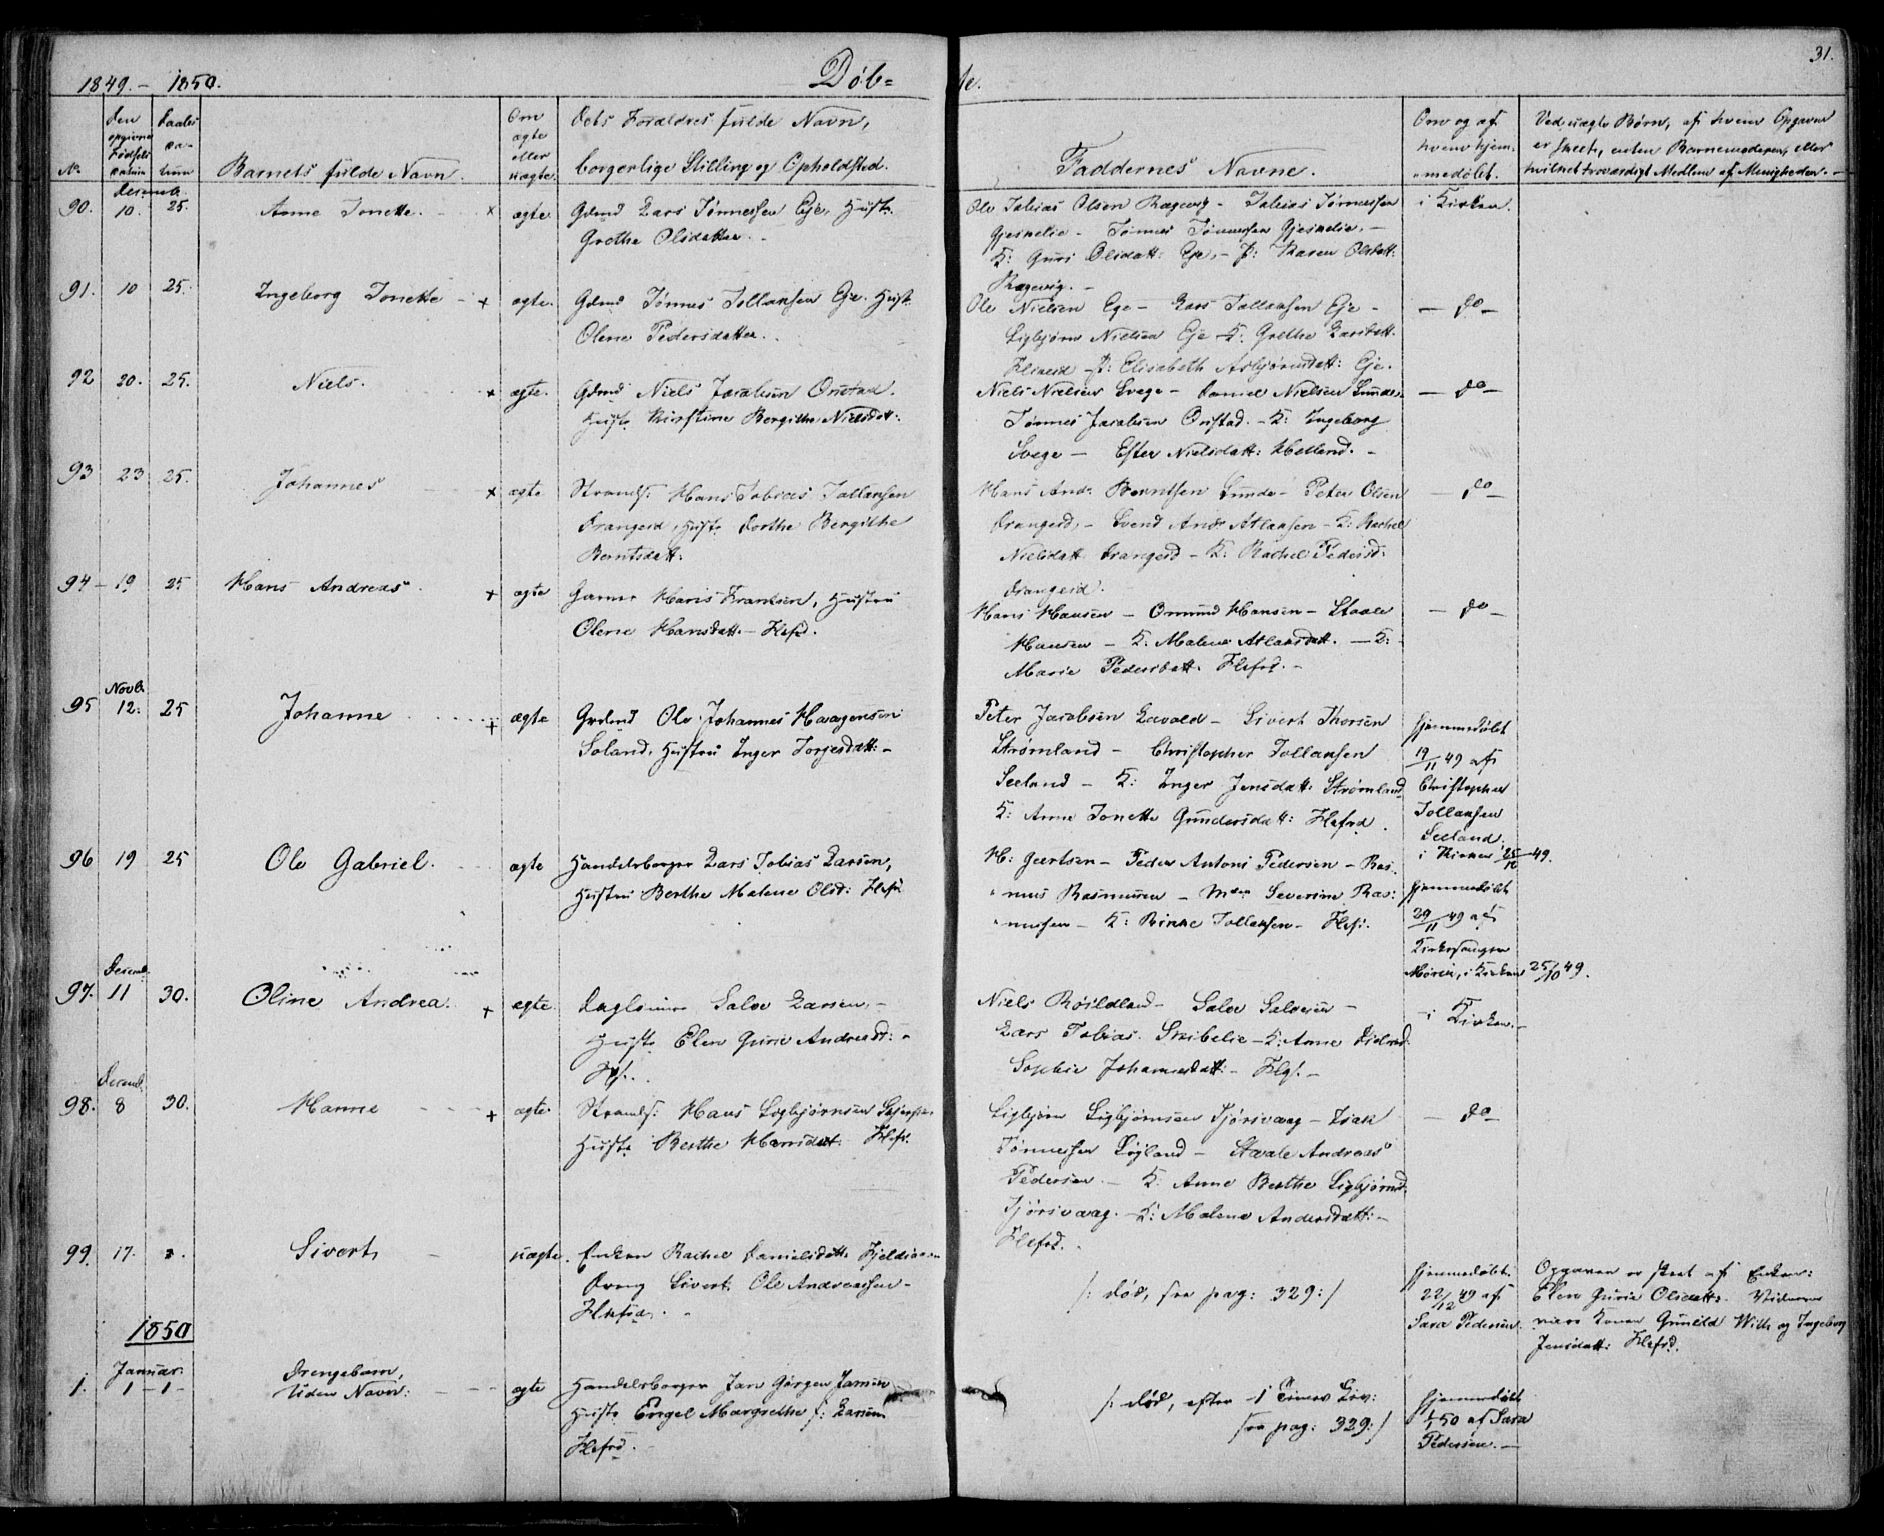 1849. - 1850. Døb= te. 31.
No.
Den opgivne Fødselsdatum
Daabsdatum
Barnets fulde Navn.
Om ægte eller uægte.
Dets Forældres fulde Navn,
borgerlige Stilling og Opholdsted.
Faddernes Navne.
Om og af hvem hjem-medøbt.
Ved uægte Børn, af hvem Opgaven
er skeet, enten Barnemoderen, eller
hvilket troværdigt Medlem af Menigheden. -
Decemb.
90. 10. 25. Anne Tonette. - x ægte. Gdmd Lars Tønnessen Eje, Hustr.
Grethe Olsdatter. -
Ole Tobias Olsen Rægevig - Tobias Tønnessen
Gjesnelie - Tønnes Tønnessen Gjesnelie, -
K: Guri Olsdatt: Eje, - P: Karen Olsdatt:
Rægevig. -
i Kirken.
91. 10 25. Ingeborg Tonette - + ægte. Gdmd Tønnes Tollaksen Eje. Hustr.
Olene Pedersdatter. .
Ole Nielsen Ege - Lars Tollaksen Eje -
Sigbjørn Nielsen Eje - K: Grethe Larsdatt.
- P: Elisabeth Asbjørnsdatt: Eje.
- do -
92 20. 25. Niels. x ægte. Gdmd Niels Jacobsen Onstad.
Hustr Kirstine Bergithe Nielsdatt:
Niels Nielsen Svege - Daniel Nielsen Sunde.
Tønnes Jacobsen Onstad. - K: Ingeborg
Svege - Ester Nielsdatt: Helland. -
- do -
93 23 25. Johannes x ægte Strands: Hans Tobias Tollaksen
Drangeid, Hustr Dorthe Bergithe
Berntsdatt:
Hans Andr. Berntsen Sunde - Peter Olsen
Drangeid, - Svend Andr Atlaksen - K: Rachel
Nielsdatt Drangeid - K: Rachel Pedersd:
Drangeid.
- do -
94 - 19 25 Hans Andreas. + ægte Garver Hans Frantsen, Hustru
Olene Hansdatt. - Flefd.
Hans Hansen - Omund Hansen - Staale
Hansen - K: Malene Atlaksdatt. - K:
Marie Pedersdatt. Flefd. -
- do -
Novb.
95 12. 25 Johanne + ægte Grdmd Ole Johannes Haagensen
Soland, Hustru Inger Torjesdatt: -
Peter Jacobsen Lavold - Sivert Thorsen
Strømland - Christopher Tollaksen
Seeland - K: Inger Jensdatt: Strømland
K: Anne Tonette Gundersdatt: Flefd.
Hjemmedøbt
19/11 49 af
Christopher
Tollaksen
Seeland,
i Kirken 25/12 49.
96 19 25 Ole Gabriel. ægte Handelsborger Lars Tobias Larsen,
Hustru Berthe Malene Olsd: Flef:
H: Geertsen - Peder Antoni Pedersen - Ras-
mus Rasmussen - Mdm Severine Ras:
mussen - K: Rinne Tollaksen - Flef:
Hjemmedøbt
29/11 49 af
Kirkesanger
i Kirken 25/10 49.
Decemb.
97. 11 30. Oline Andrea. + ægte. Dagleier Salve Larsen, -
Hustr Elen Gurie Andreasd: -
Flf. .
Niels Røildland - Salve Salvesen -
Lars Tobias. Skibelie - K: Anne
Sophie Johannesdatt: - Flef. -
- i Kirken. -
Decemb.
98. 8 30. Hanne + ægte. Strands: Hans Sigbjørnsen
Hustr Berthe Hansdatt. Flef.
Sigbjørn Sigbjørnsen Tjørsvaag - Isak
Tønnessen Løgland - Staale Andreas
Pedersen. - K. Anne Berthe Sigbjørnsd:
Tjørsvaag. - K: Malene Andersdatt: -
Flefd. .
- do -
99. 17. Sivert, uægte. Enken Rachel Danielsdatt.
Sivert Ole Andreassen -
Flefd.
/: død, see pag: 329:/
Hjemmedøbt.
22/12 49 af
Sara Pedersen.
Opgaven er skeet af Enken:
Elen Gurie Olsdatt. Vidner
være Konen Gunild With og Ingeborg
Jensdatt. Flefd.
1850
Januar.
1. 1 - 1 - Drengebarn,
Uden Navn: - - - ægte Handelsborger Jan Gørgen Jansen
Hustr Engel Margrethe f: Larsen
Flefd.
/: død, efter 1 Times Liv:
see pag: 329:/
Hjemmedøbt
1/1 50 af Sara
Pedersen. -